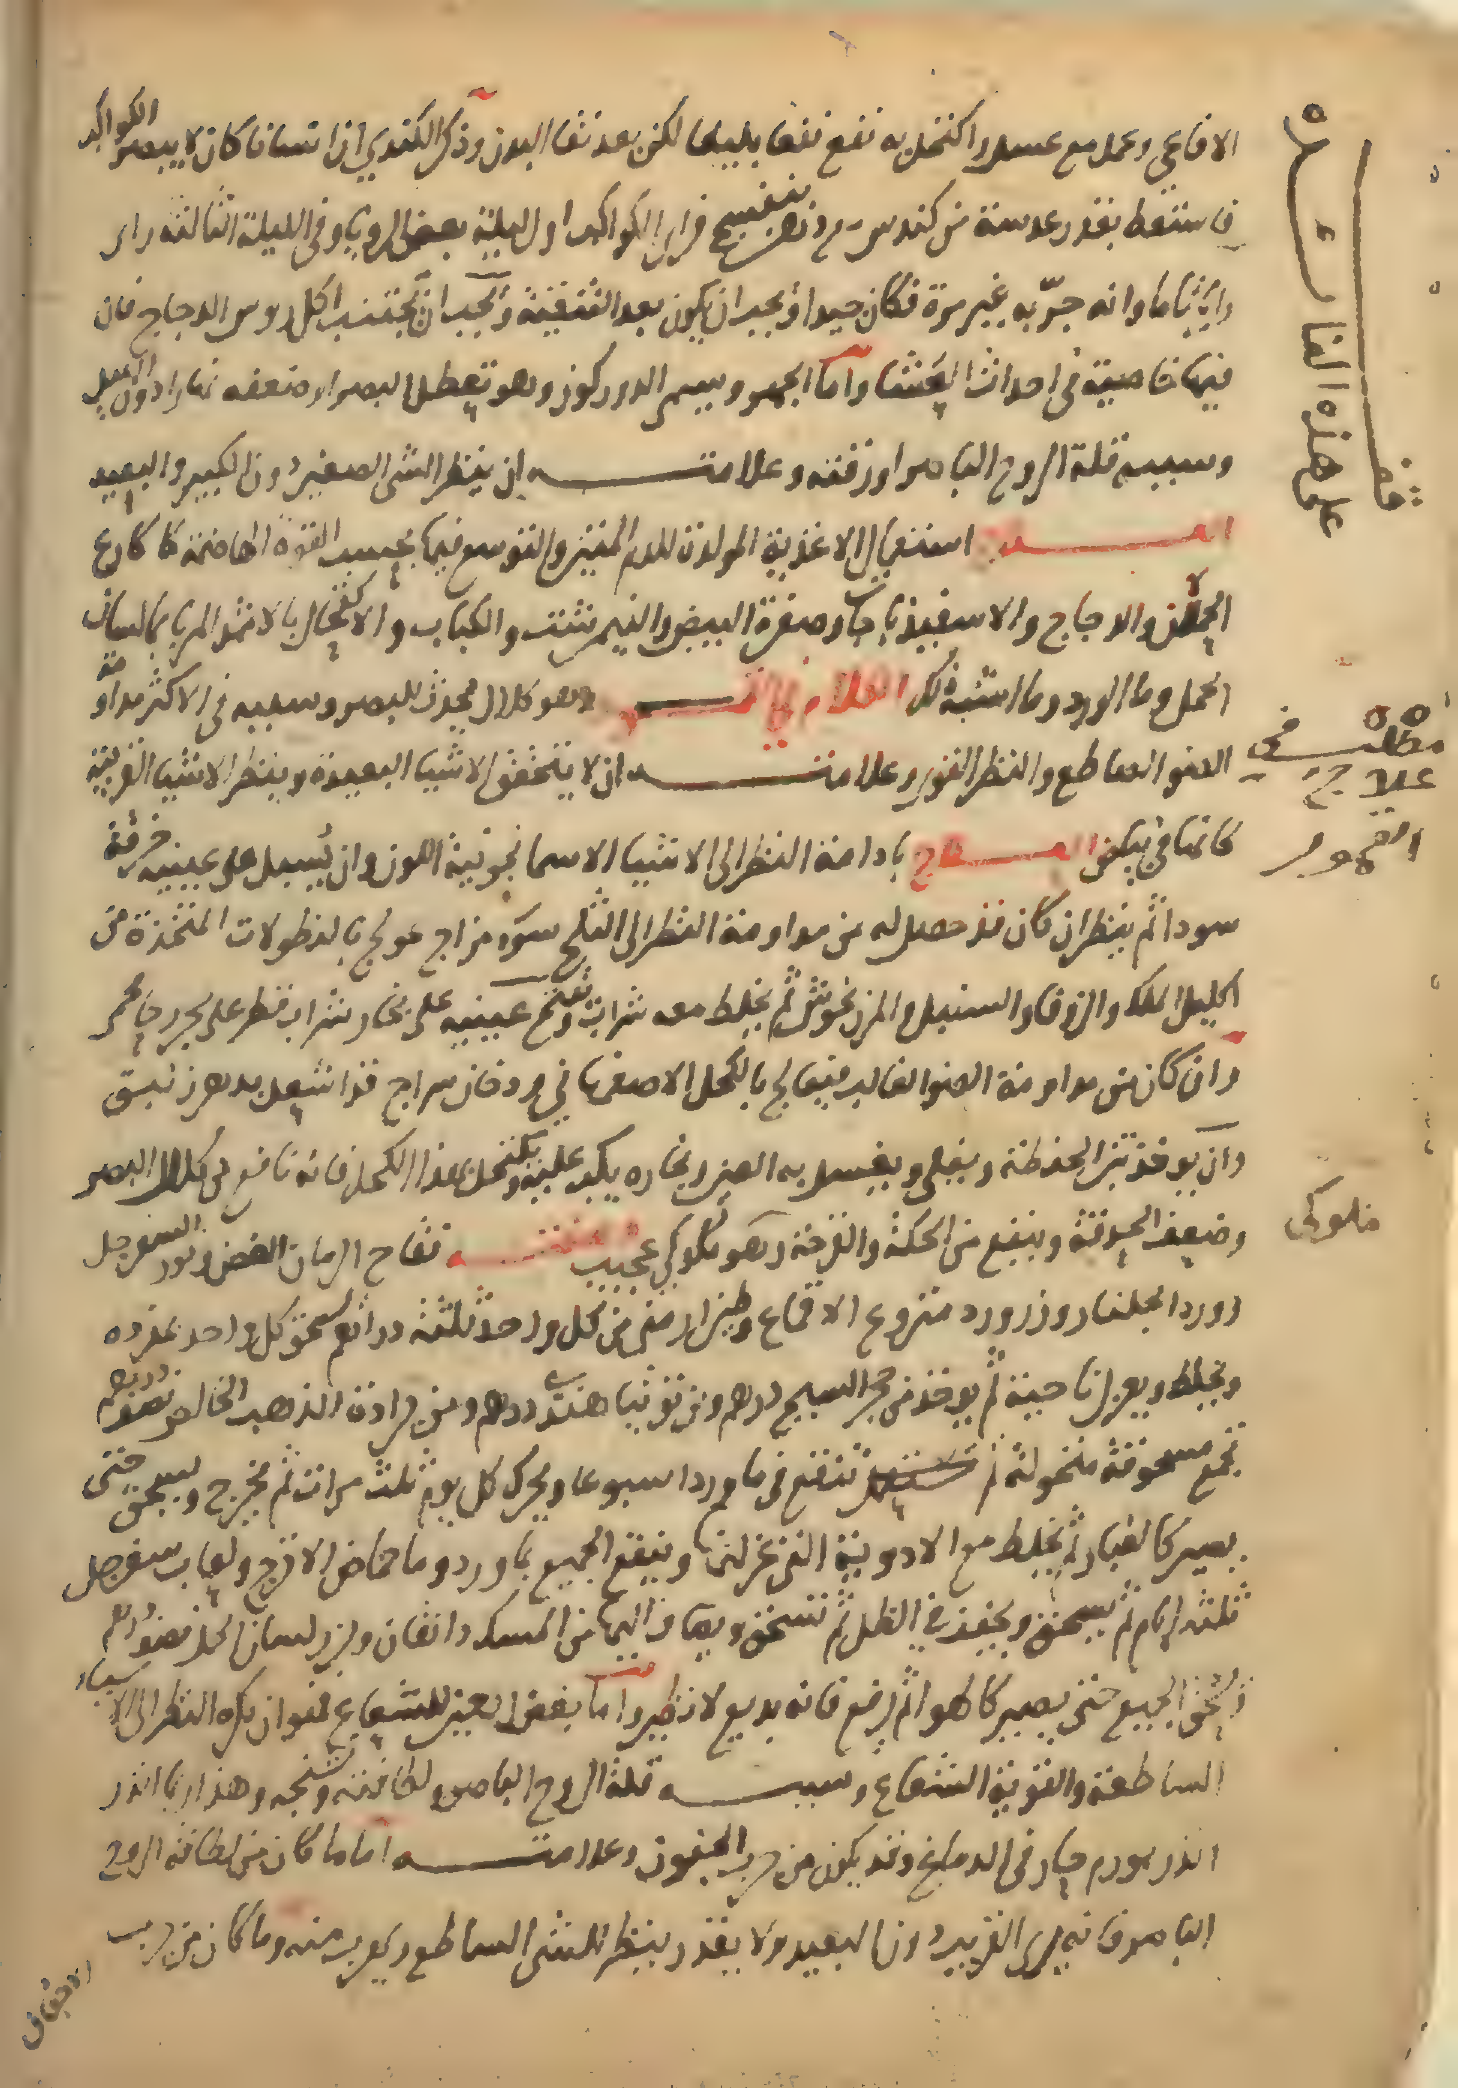 الافاعي وعمل مع عسل واكتحل به نفع نفعا بليغا لكن بعد نقا البدن وذكر الكندي ان انسانا كان لا يبصر الكواكب
فاستعط بقدر عدسة من كندس مع دهن بنفسج فراى الكواكب اول ليلة بعض الروية وفي الليلة الثالثة راى
تاما وانه جربه غير مرة فكان جيدا ويجب ان يكون بعد التنقية ويجب ان يجتنب اكل روس الدجاج فان
فيها خاصية في احداث العشا واما الجهر ويسمى الدوركوز وهو تعطل البصر او ضعفه نهارا دون الليل
وسببه قلة الروح الباصر او رقته وعلامته ان ينظر الشى الصغير دون الكبير والبعيد
استعمال الاغذية المولدة للدم المتين والتوسع فيها بحسب القوة الهاضمة كاكارع
الحملان والدجاج والاسفيذباجات وصفرة البيض النيمرشت والكباب والاكتحال بالاثمد المربا بما لسان
الحمل وما الورد وما اشبه ذلك الكلام في القمور وهو كلال يحدث للبصر وسببه في الاكثر مداومة
الضو الساطع والنظر القوي وعلامته ان لا يتحقق الاشيا البعيدة وينظر الاشيا القريبة
كانها في العلاج بادامة النظر الى الاشيا الاسمانجونية اللون وان يسبل على عينيه خرقة
سودا ثم ينظر ان كان قد حصل له من مداومة النظر الى الثلج سوء مزاج عولج بالنطولات المتخذة من
اكليل الملك والزوفا والسنبل والمرزنجوش ثم يخلط معه شراب وتفتح عينيه على بخار شراب قطر على حجر رحا محمى
وان كان من مداومة الضو الغالب فيعالج بالكحل الاصفهاني ودخان سراج قد اشعل بدهن زنبق
وان يوخذ تبن الحنطة ويغلى ويغسل به العين وبخاره يكب عليه ويكتحل بهذا الكحل فانه نافع من كلال البصر
وضعف الحدقة وينفع من الحكة والقرحة وهو ملوكي عجيب صفته تفاح الرمان الغض ونور السفرجل
وورد الجلنار وزرورد منزوع الاقماع وطين ارمني من كل واحد ثلثة دراهم يسحق كل واحد بمفرده
ويخلط ويعزل ناحية ثم يوخذ من حجر السبج درهم ومن توتيا هندي درهم ومن برادة الذهب الخالص نصف درهم
تجمع مسحوقة منخولة ثم تنقع في ماورد اسبوعا ويحرك كل يوم ثلث مرات ثم يخرج ويسحق حتى
يصير كالغبار ثم يخلط مع الادوية التي عزلتها وينقع الجميع بماورد وما حماض الاترج ولعاب سفرجل
ثلثة ايام ثم يسحق ويجفف في الظل ثم تسحق ويضاف اليها من المسك دانقان وبزر لسان الحمل نصف درهم
يسحق الجميع حتى يصير كالهوا ثم يرفع فانه بديع لا نظير له واما بغض العين للشعاع فهو ان يكره النظر الى الاشياء
الساطعة والقوية الشعاع وسببه قلة الروح الباصر ولطافته وهذا ربما انذر
انذر بورم حار في الدماغ وقد يكون من جرب الجفون وعلامته اما ما كان من لطافة الروح
الباصر فانه يرى القريب دون البعيد ولا يقدر ينظر للشى الساطع ويهرب منه وما كان من جرب
الاجفان
على هذه الفارة
مطلب في
علاج
القمور
ملوكي